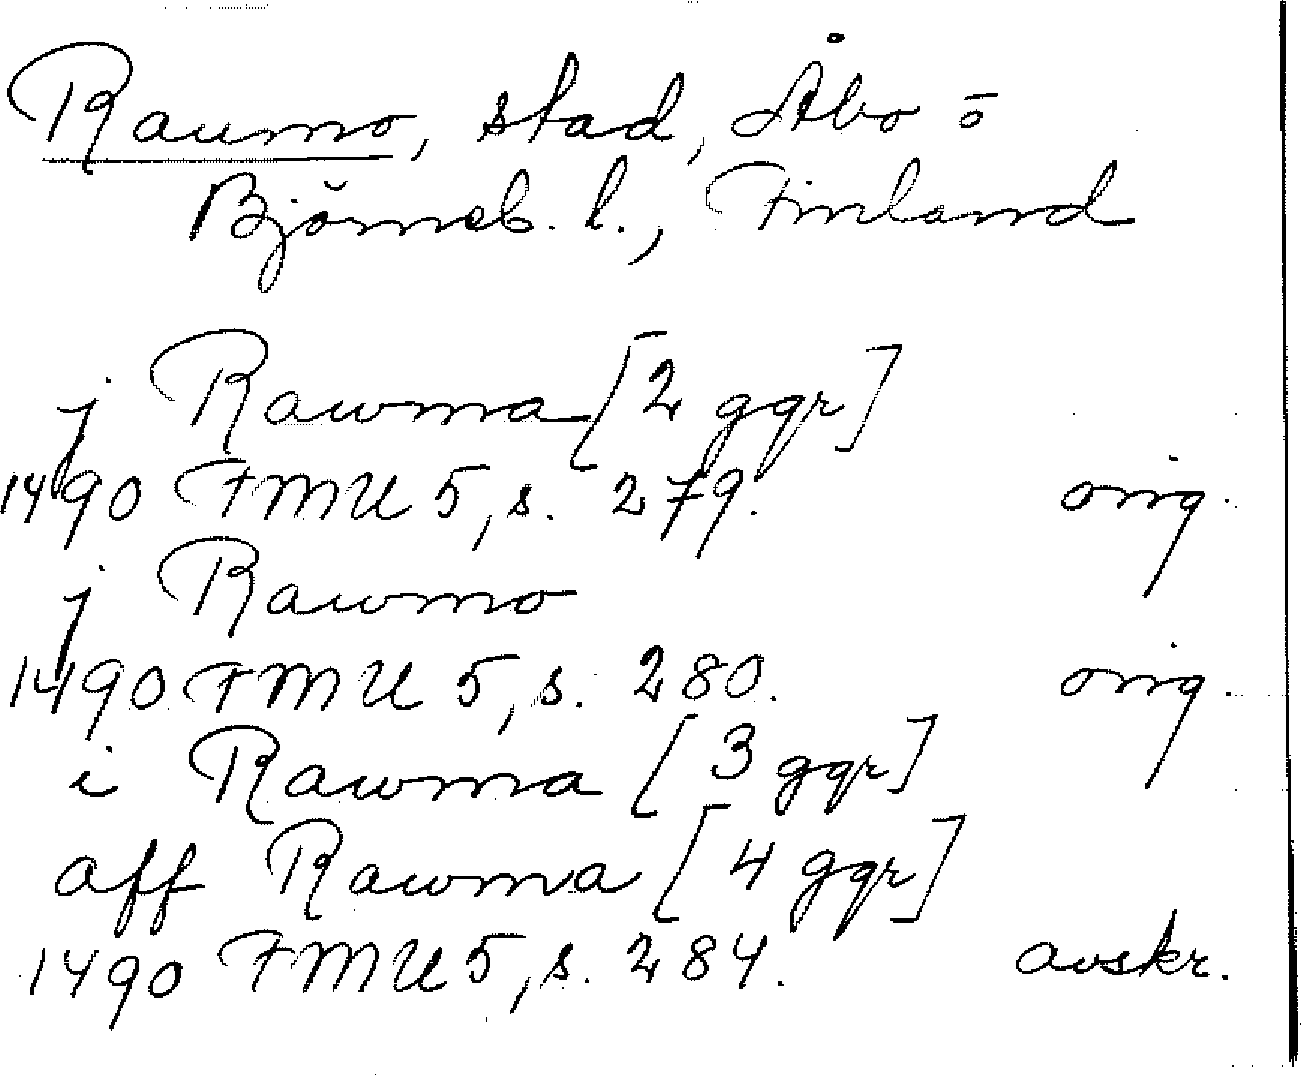 Raumo, stad, Åbo o
Björneb. l., Finland
j Rawma [2 ggr]
1490 FMU 5, s. 279. orig.
j Rawmo
1490 FMU 5, s. 280. orig.
i Rawma [3 ggr]
aff Rawma [4 ggr]
1490 FMU 5, s. 284. avskr.